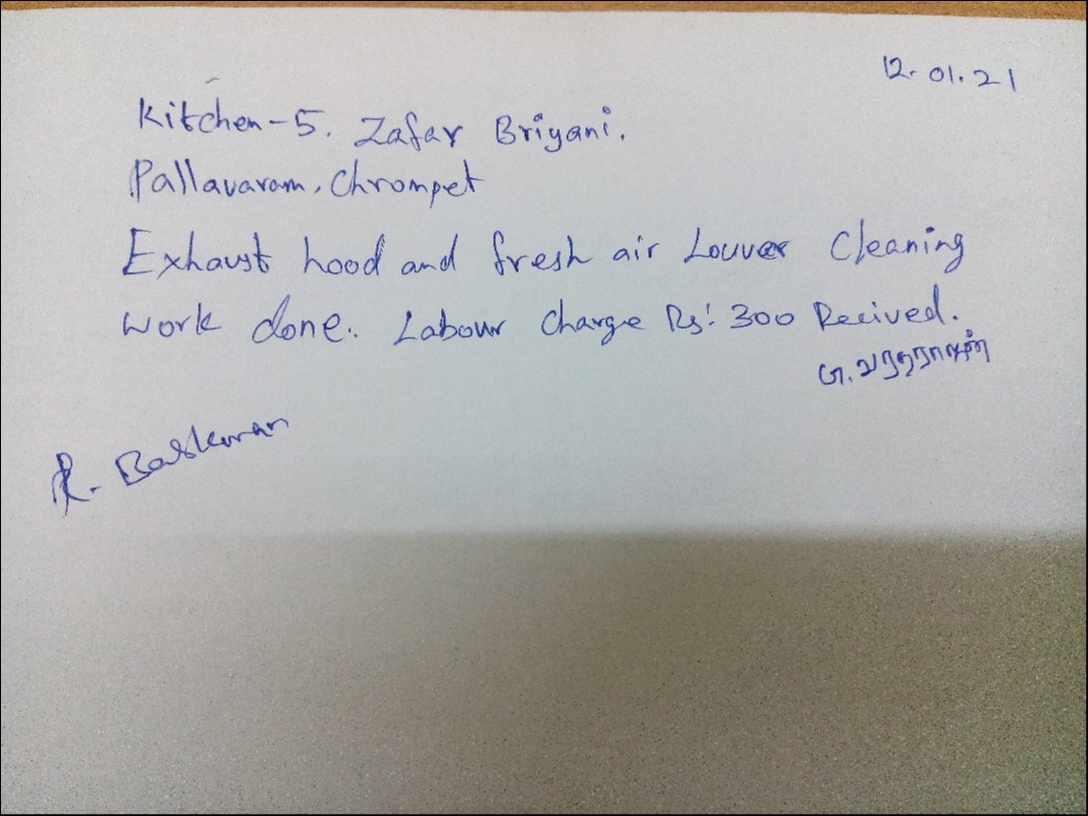 12.01.21
Kitchen-5. Zafar Briyani.
Pallavaram, Chrompet
Exhaust hood and fresh air Louver Cleaning
work done. Labour Charge Rs: 300 Recived.
R. Baskaran